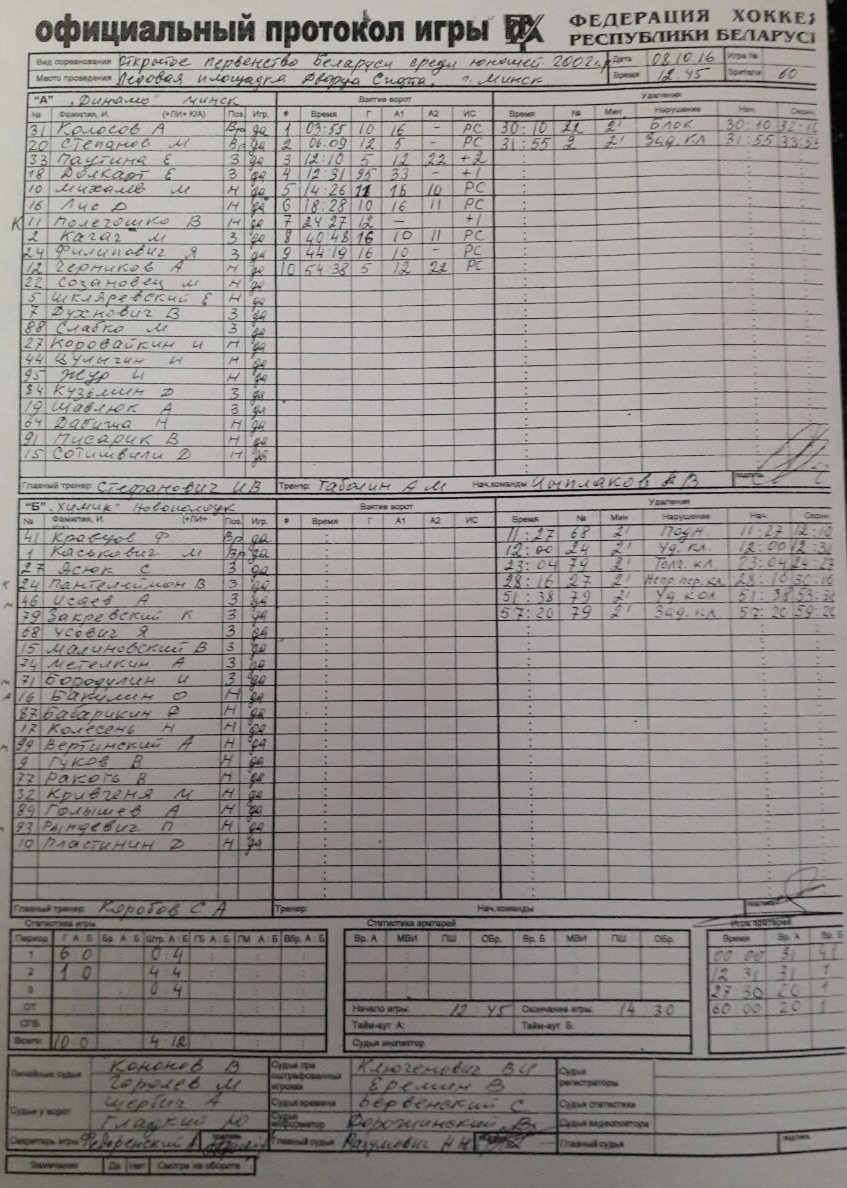 официальный протокол игры
ФЕДЕРАЦИЯ ХОККЕЯ
РЕСПУБЛИКИ БЕЛАРУСЬ
Вид соревнования Открытое первенство Беларуси среди юношей 2002 г.р. Дата 08.10.16 Игра №
Место проведения Ледовая площадка Дворца Спорта, г. Минск Время 12.45 Зрители 60
"А" „Динамо" Минск Взятие ворот Удаления
№ Фамилия, И. Поз. Игр. # Время Г А1 А2 ИС Время № Мин Нарушение Нач. Оконч.
31 Колосов А Вр да 1 03:55 10 16 - РС 30:10 22 2' Блок 30:10
20 Степанов М Вр да 2 06:09 12 5 - РС 31:55 2 2' Зад. кл 31:55
33 Паутина Е З да 3 12:10 5 12 22 +2
18 Долкарт Е З да 4 12:31 95 33 - +1
10 Михалев М Н да 5 14:26 11 16 10 РС
16 Лис D Н да 6 18:28 10 16 11 РС
К 11 Полегошко В Н да 7 24 27 12 - +1
2 Кагач М З да 8 40:48 16 10 11 РС
24 Филипович Я З да 9 44:19 16 10 - РС
12 Черников А Н да 10 54:38 5 12 22 РС
22 Созановец М Н да
5 Шкляревский Е Н да
7 Духнович В З да
88 Слабко М З да
27 Коровайкин И Н да
44 Цулыгин И Н да
95 Жур И Н да
84 Кузьмин D З да
19 Шавлюк А З да
64 Н Н да
91 Писарик В Н да
15 Сотишвили D Н да
Главный тренер: Стефанович ИВ Тренер: А М Нач.команды Цыплаков А В подпись
"Б" „Химик" Новополоцк Взятие ворот Удаления
№ Фамилия, И. Поз. Игр. # Время Г А1 А2 ИС Время № Мин Нарушение Нач. Оконч.
41 Кравцов Ф Вр да 11:27 68 2' Подн 11:27 12:10
1 Каськович М Вр да 12:00 24 2' Уд. кл. 12:00 12:31
27 Ясюк С З да 23:04 79 2' Толч. кл. 23:04 24:27
к 24 Пантелеймон В З да 28:16 27 2' 28:16 30:16
46 Исаев А З да 51:38 79 2' Уд кол 51:38 53:38
79 Закревский К З да 57:20 79 2' Зад. кл 57:20 59:20
68 Усович Я З да
15 Малиновский В З да
74 Метелкин А З да
71 Бородулин И З да
А 16 Бакулин О Н да
87 Бабарикин D Н да
17 Колесень Н Н да
99 Вертинский А Н да
9 Гуков В Н да
77 Ракоть В Н да
32 Кривченя М Н да
89 Голышев А Н да
93 Рындевич П Н да
10 Пластинин D Н да
Главный тренер: Коробов С А Тренер: Нач.команды подпись
Статистика игры Статистика вратарей Игра вратарей
Период Г А:Б Бр. А:Б Штр. А:Б ГБ А:Б ГМ А:Б Вбр. А:Б Вр. А МВИ ПШ ОБр. Вр. Б МВИ ПШ ОБр. Время Вр. А Вр. Б
1 6:0 0:4 00 00 31 41
2 1:0 4 4 12 31 31 1
3 0 4 27 30 20 1
ОТ Начало игры: 12:45 Окончание игры: 14:30 60 00 20 1
СПБ Тайм-аут А: Тайм-аут Б:
Всего: 10 0 4:12 Судья инспектор
Линейные судьи Кононов В Судьи при оштрафованных игроках Ключенович ВИ Судьи регистраторы
Горолев М Еремин В
Судьи у ворот Щербич А Судья времени Бервенский С Судья статистики
Гладкий Ю Судья информатор Ворожинский В Судьи видеоповтора
Секретарь игры Федеренский А Главный судья Разумович НН Главный судья подпись
Замечания Да Нет Смотри на обороте